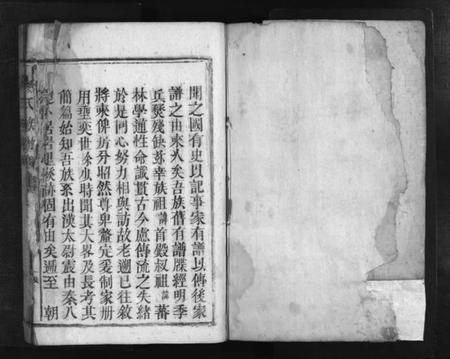 聞之國有史以記事家有譜以傳後家
譜之由來久矣吾族舊有譜牒經明季
兵燹殘缺幸族祖諱首殿叔祖諱蕃
林學通性命識貫古今慮傳流之失緒
於是同心努力相與訪故老遡已往敘
將來俾房分昭然尊卑釐定爰制家冊
用垂奕世餘少時聞其大畧及長考其
簡篇始知吾族系出漢太尉震由秦八
居跡固有由矣逓至 朝